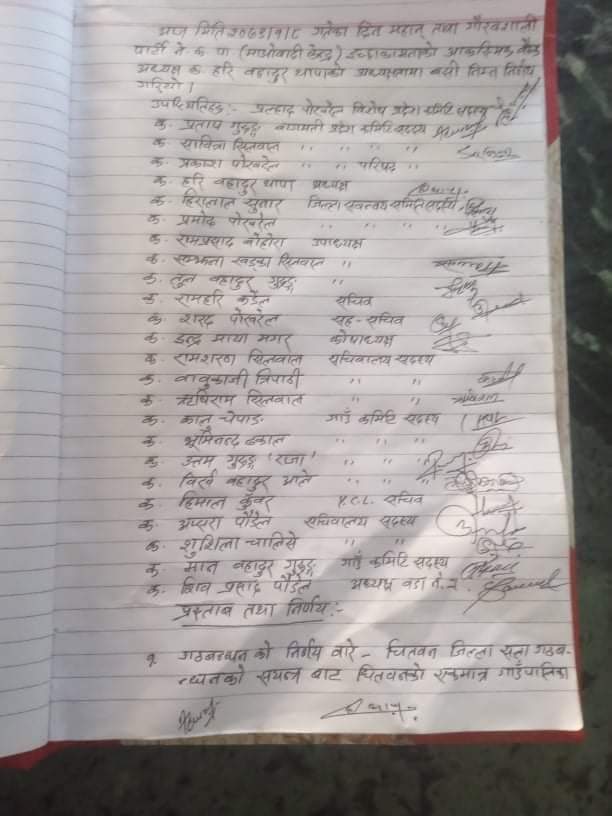 आज मिति २०७९/१/८ गतेका दिन महान् तथा गौरवशाली
पार्टी ने क पा (माओवादी केन्द्र) इच्छाकामनाको आकस्मिक बैठक
अध्यक्ष क हरि बहादुर थापाको अध्यक्षतामा बसी निम्न निर्णय
गरियो ।
उपस्थितिहरु :- प्रल्हाद पोखरेल विशेष प्रदेश कमिटि सदस्य
क. प्रताप गुरुङ्ग बागमती प्रदेश कमिटि सदस्य
क. सावित्रा सिलवाल " " " "
क. प्रकाश पोखरेल " " परिषद "
क. हरि बहादुर थापा अध्यक्ष
क. हिरालाल सुनार जिल्ला समन्वय समिति सदस्य
क. प्रमोद पोखरेल " " " "
क. रामप्रसाद बोहोरा उपाध्यक्ष
क. सम्झना खड्का सिलवाल "
क. तुल बहादुर गुरुङ्ग "
क. रामहरि कंडेल सचिव
क. शरद पोखरेल सह-सचिव
क. इन्द्र माया मगर कोषाध्यक्ष
क. रामशरण सिलवाल सचिवालय सदस्य
क. बाबुकाजी त्रिपाठी " "
क. ऋषिराम सिलवाल " "
क. काले चेपाङ गाउँ कमिटि सदस्य
क. भूमिनन्द ढकाल " " "
क. उत्तम गुरुङ्ग 'राजा' " " "
क. विर्ख बहादुर आले " " "
क. हिमाल कुँवर Y.C.L. सचिव
क. अप्सरा पौडेल सचिवालय सदस्य
क. शुशिला चालिसे " "
क. मान बहादुर गुरुङ्ग गाउँ कमिटि सदस्य
क. शिव प्रसाद पौडेल अध्यक्ष वडा नं. २.
प्रस्ताब तथा निर्णय :-
१. गठबन्धन को निर्णय बारे - चितवन जिल्ला सत्ता गठब-
न्धनको संयन्त्र बाट चितवनको एकमात्र गाउँपालिका